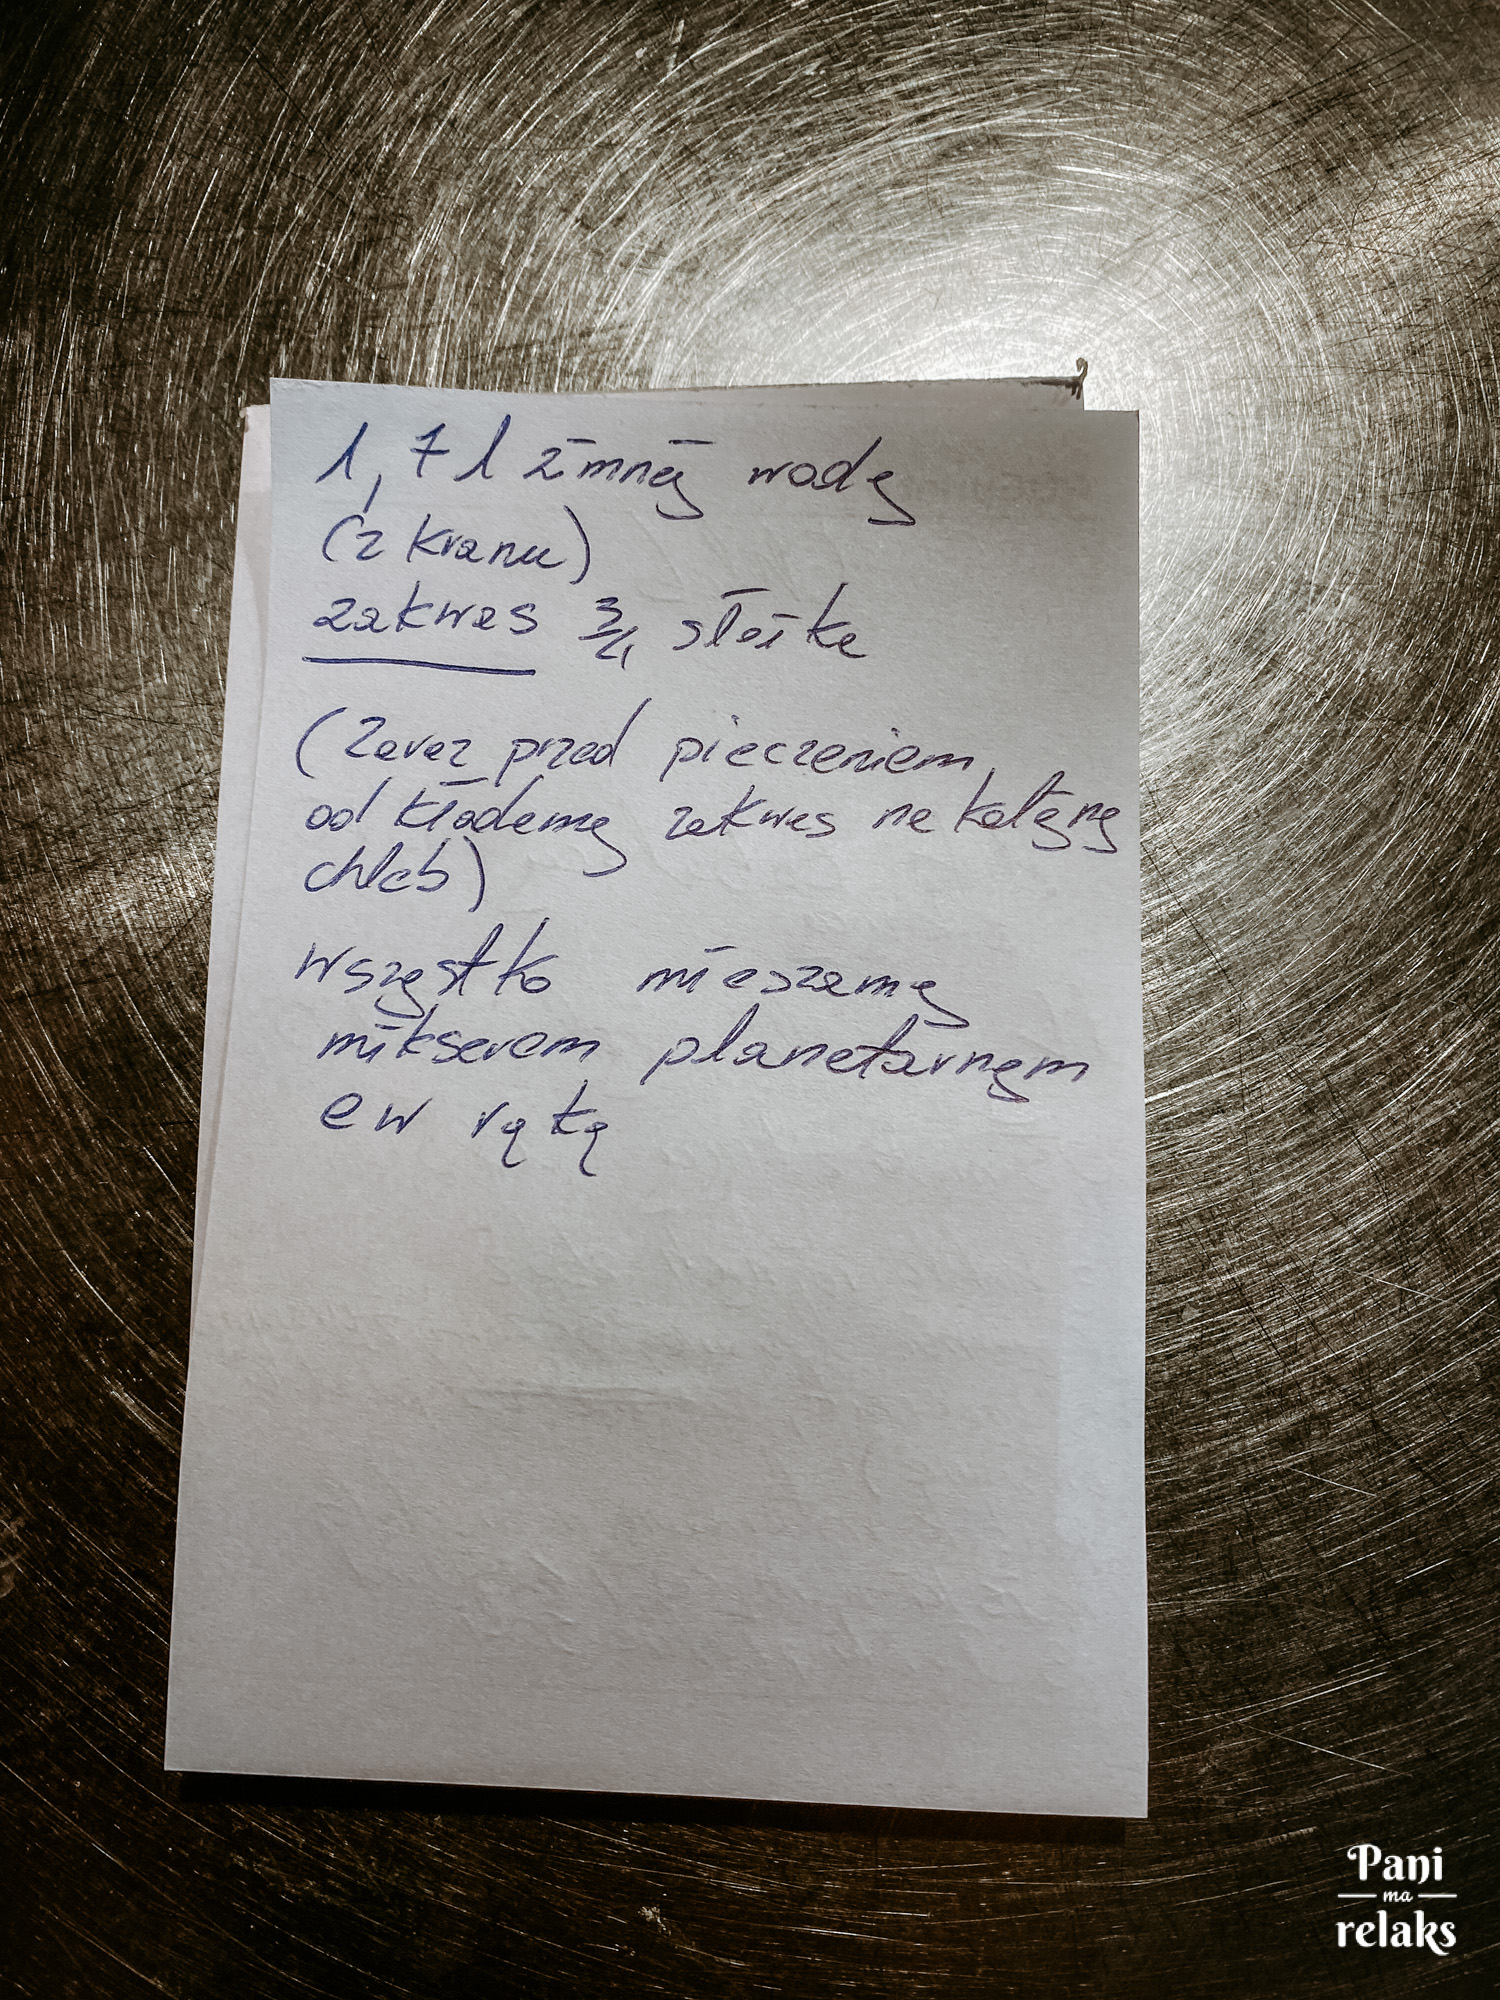 1,7 l zimnej wody
(z kranu)
zakwas 3/4 słoika
(Zaraz przed pieczeniem
odkładamy zakwas na kolejny
chleb)
Wszystko mieszamy
mikserem planetarnym
ew ręką
Pani
ma
relaks